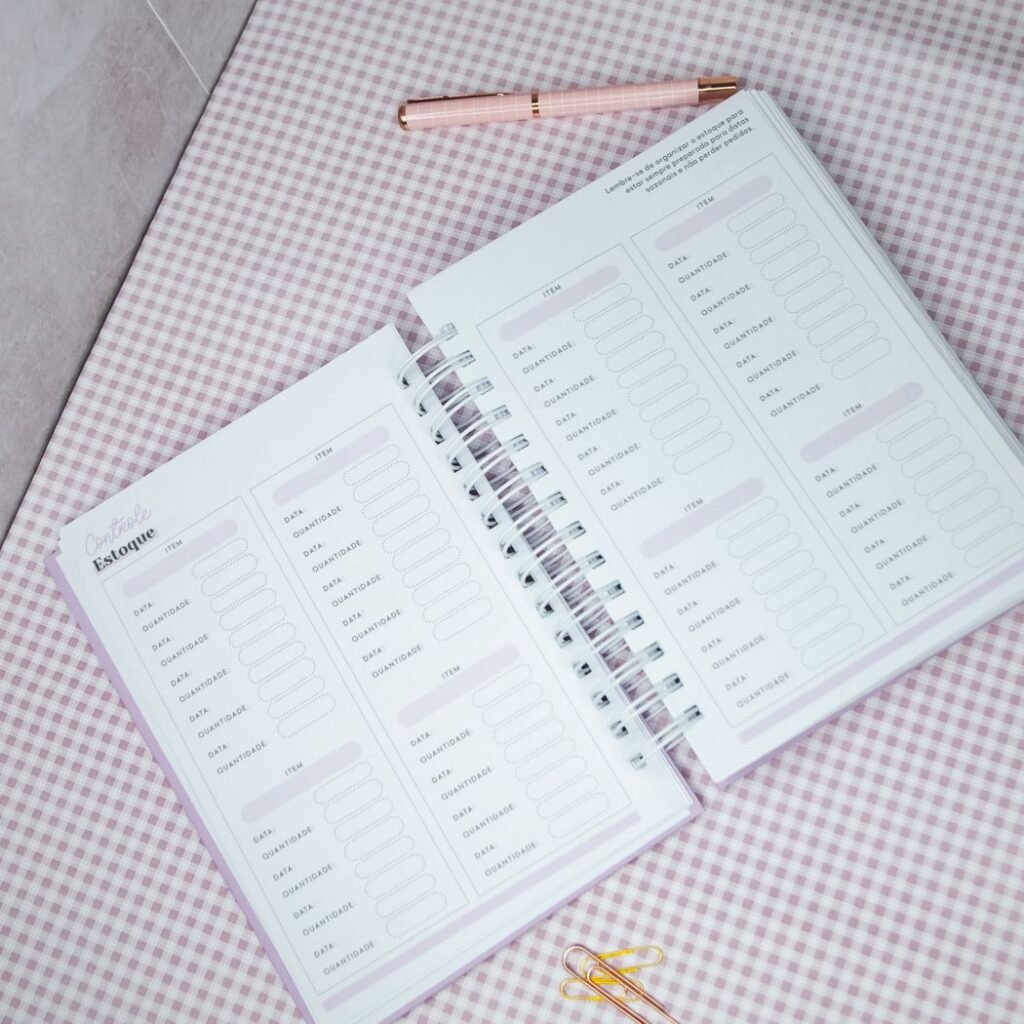 Controle
Estoque
ITEM
DATA:
QUANTIDADE:
DATA:
QUANTIDADE:
DATA:
QUANTIDADE:
DATA:
QUANTIDADE:
DATA:
QUANTIDADE:
ITEM
DATA:
QUANTIDADE:
DATA:
QUANTIDADE:
DATA:
QUANTIDADE:
DATA:
QUANTIDADE:
ITEM
DATA:
QUANTIDADE:
DATA:
QUANTIDADE:
DATA:
QUANTIDADE:
DATA:
QUANTIDADE:
DATA:
QUANTIDADE:
ITEM
DATA:
QUANTIDADE:
DATA:
QUANTIDADE:
DATA:
QUANTIDADE:
DATA:
QUANTIDADE:
Lembre-se de organizar o estoque para
estar sempre preparada para datas
sazonais e não perder pedidos.
ITEM
DATA:
QUANTIDADE:
DATA:
QUANTIDADE:
DATA:
QUANTIDADE:
DATA:
QUANTIDADE:
DATA:
QUANTIDADE:
ITEM
DATA:
QUANTIDADE:
DATA:
QUANTIDADE:
DATA:
QUANTIDADE:
DATA:
QUANTIDADE:
ITEM
DATA:
QUANTIDADE:
DATA:
QUANTIDADE:
DATA:
QUANTIDADE:
DATA:
QUANTIDADE:
DATA:
QUANTIDADE:
ITEM
DATA:
QUANTIDADE:
DATA:
QUANTIDADE:
DATA:
QUANTIDADE:
DATA:
QUANTIDADE: